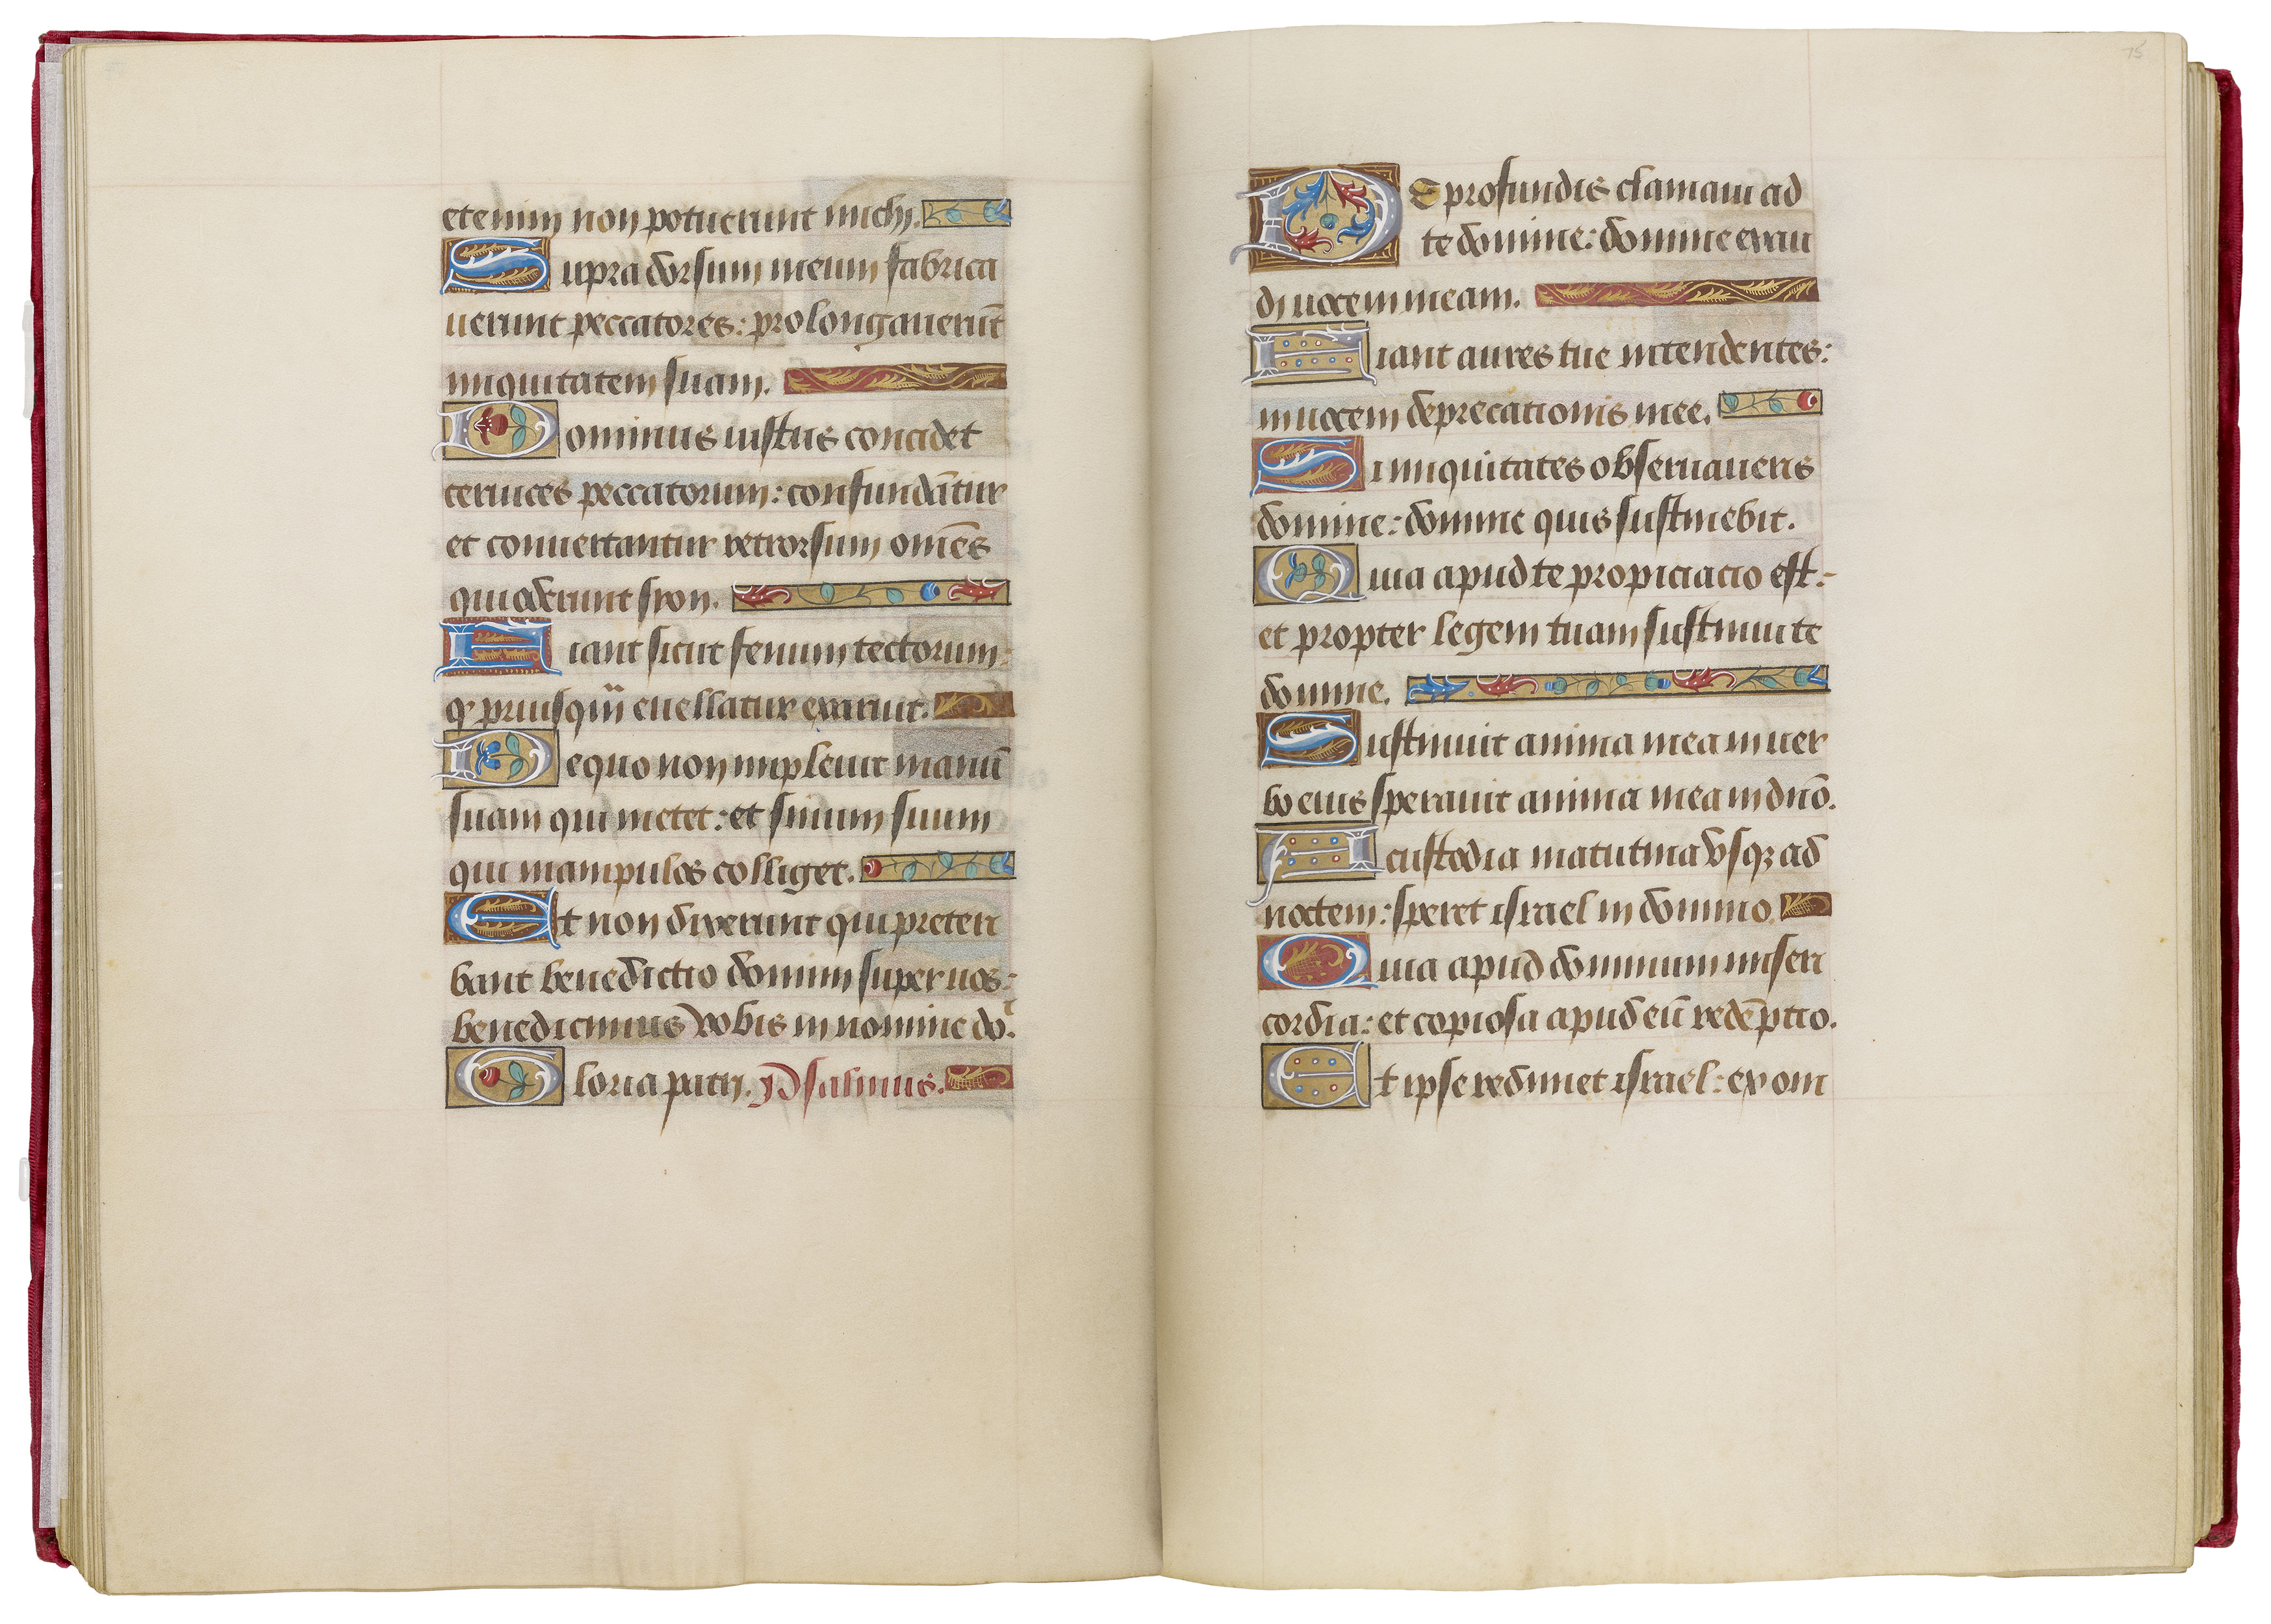 etenim non potuerunt michi.
Supra dorsum meum fabrica
uerunt peccatores: prolongauerūt
iniquitatem suam.
Dominus iustus concidet
ceruices peccatorum: confundātur
et conuertantur retrorsum om̄es
qui oderunt syon.
Fiant sicut fenum tectorum:
qr priusqȝ euellatur exaruit.
De quo non impleuit manū
suam qui metet: et sinum suum
qui manipulos colliget.
Et non dixerunt qui preteri
bant benedictio domini super uos:
benediximus vobis in nomine do.ⁱ
Gloria patri. Psalmus.
15
De profundis clamaui ad
te domine: domine exau
di uocem meam.
Fiant aures tue intendentes:
in uocem deprecationis mee.
Si iniquitates obseruaueris
domine: domine quis sustinebit.
Quia apud te propiciacio est:
et propter legem tuam sustinui te
domine.
Sustinuit anima mea in uer
bo eius sperauit anima mea in dn̄o.
A custodia matutina vsqȝ ad
noctem: speret israel in domino
Quia apud dominum miseri
cordia: et copiosa apud eū redēptio.
Et ipse redimet israel: ex om